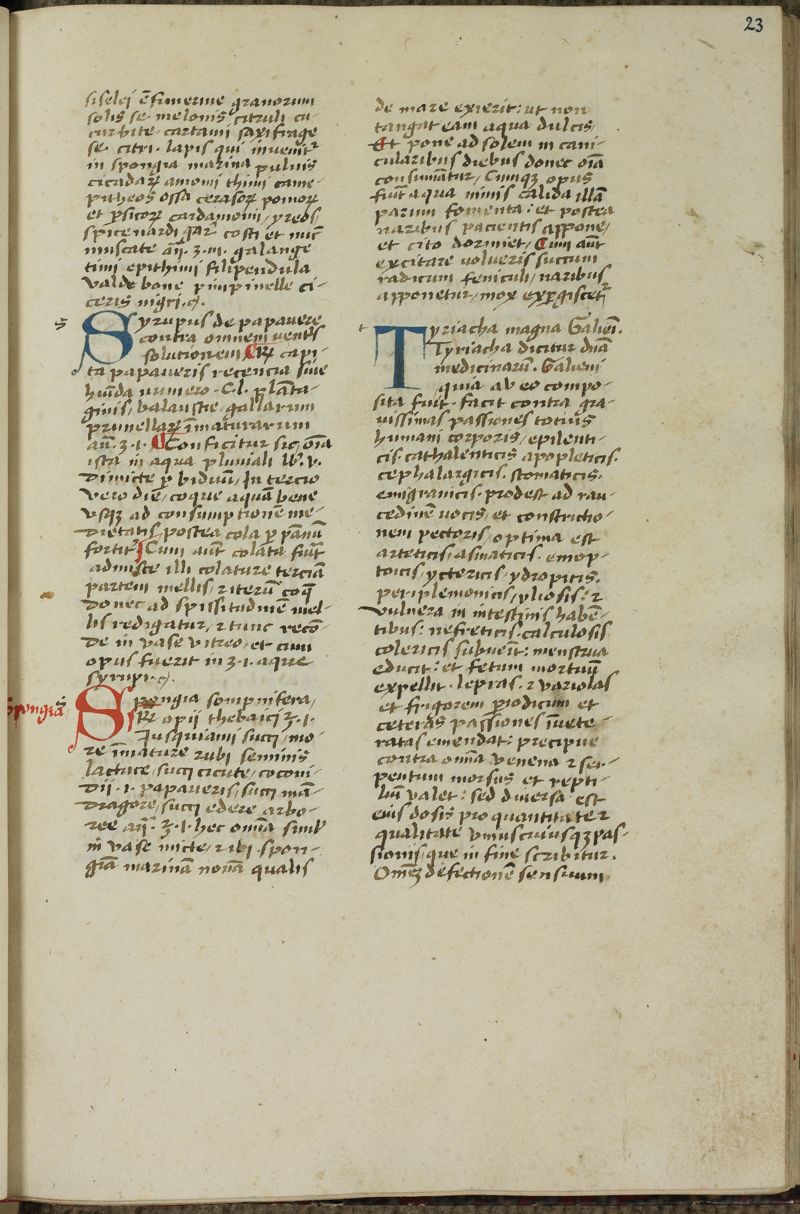 23
siselei
solis se. melonis, citruli cu-
curbite. cartami saxifrage
se. citri. lapis qui invenitr
in spongia marina pulvis
cicadaꝝ amomi thimi came-
pitheos ossa cerasoꝝ pomoꝝ
et ꝑsicoꝝ cardamomi, yreos,
spice nardi costi et nuc̄
muscate añ. ʒ. iii. galange
timi epithimi filipendula
valde bone pimpinelle ci-
ceris nigri.
s
Syrupus de papavere
contra omnem ventris
solucionem ℞ capi-
ta papaveris recencia sive
numero. C. l. planta-
ginis, balaustie, gallarum
prunellaꝝ īmaturarum
añ. ʒ. i. Conficitur sic, oīa
ista in aqua pluviali lb. v.
Dimitte ꝑ biduū, In tercio
vero die, coque aquam bene
usqꝫ ad consumptionem me-
dietatis, postea cola ꝑ pannū
fortit̄ Cum aut̄ colata fuit̄
admisce illi colature terciā
partem mellis, ⁊ iterū coqͥ
Donec ad spissitudinē mel-
lis redigatur, ⁊ tunc recō-
de in vase vitreo, et cum
opus fuerit in ʒ. i. aque
syrupi.
Spongia
s
Spongia sompnifera,
℞ opii thebaici ʒ. i.
Jusquiami succi, mo-
re īmature rubi seminis
lactuce, succi cicute, coconi-
dii. i. papaveris, succi mā-
dragore, succi edere arbo-
ree añ. ʒ. i. hec omnia simul
in vase mitte, ⁊ ibi spon-
giā marinā novā qualis
de mare exierit: ut non
tangat eam aqua dulcis,
Et pone ad solem in cani-
cularibus diebus donec oīa
consumātur, Cumqꝫ opus
fuit̄ aqua nimis calida illā
parum fomenta: et postea
naribus pacientis appone,
et cito dormiet, Cum aut̄
excitare volueris succum
radicum feniculi, naribus
apponetur, mox exꝑgiscetr
t
Tyriacha magna Galieni.
Tyriacha dicitur dnā
medicinarū. Galieni
quia ab eo compo-
sita fuit. facit contra gra-
vissimas passiones totius
humani corporis, epilenti-
cis. cathalenticis apopleticis.
cephalargicis. stomaticis.
emigranicis. prodest ad rau-
cedinem vocis, et constrictio-
nem pectoris, optima est
arteticis, asmaticis. emop-
toicis, yctericis, ydropicis.
peri plemonicis, yliosis: ⁊
vulnera in intestinis habē-
tibus: nefreticis. calculosis
colericis subvenit: menstrua
educit: et fetum mortuū
expellit. lepras. ⁊ variolas
et frigorem ꝑiodicum et
ceteras passiones īvete-
ratas emendat: precipue
contra omia venena ⁊ ser-
pentum morsus et repti-
liū valet: sed diversa est
eius dosis pro quantitate ⁊
qualitate uniuscuiusqꝫ pas-
sionis, que in fine scribitur.
Omēꝫ defectionē sensuum